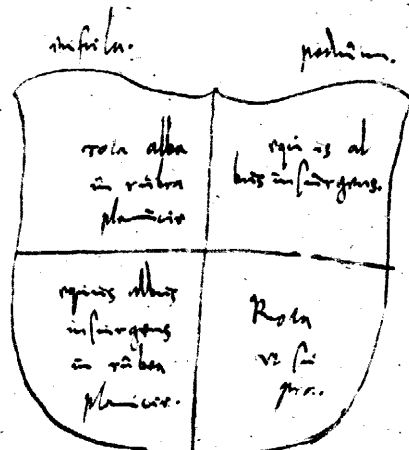 infula.
pedum.
rota alba
in rubra
planicie
equus al
bus insurgens.
equus albus
insurgens
in rubea
planicie.
Rota
vt su
pra.